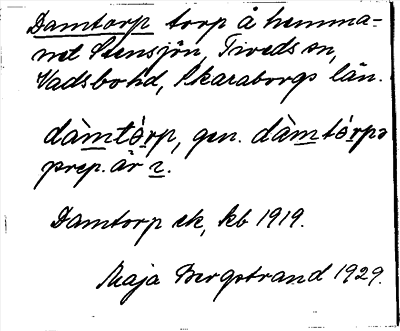 Damtorp torp å hemma-
net Stensjön, Tiveds sn,
Vadsbo hd, Skaraborgs län.
dàmtórp, gen. dàmtórps
prep. är i.
Damtorp ek, kb 1919.
Maja Bergstrand 1929.